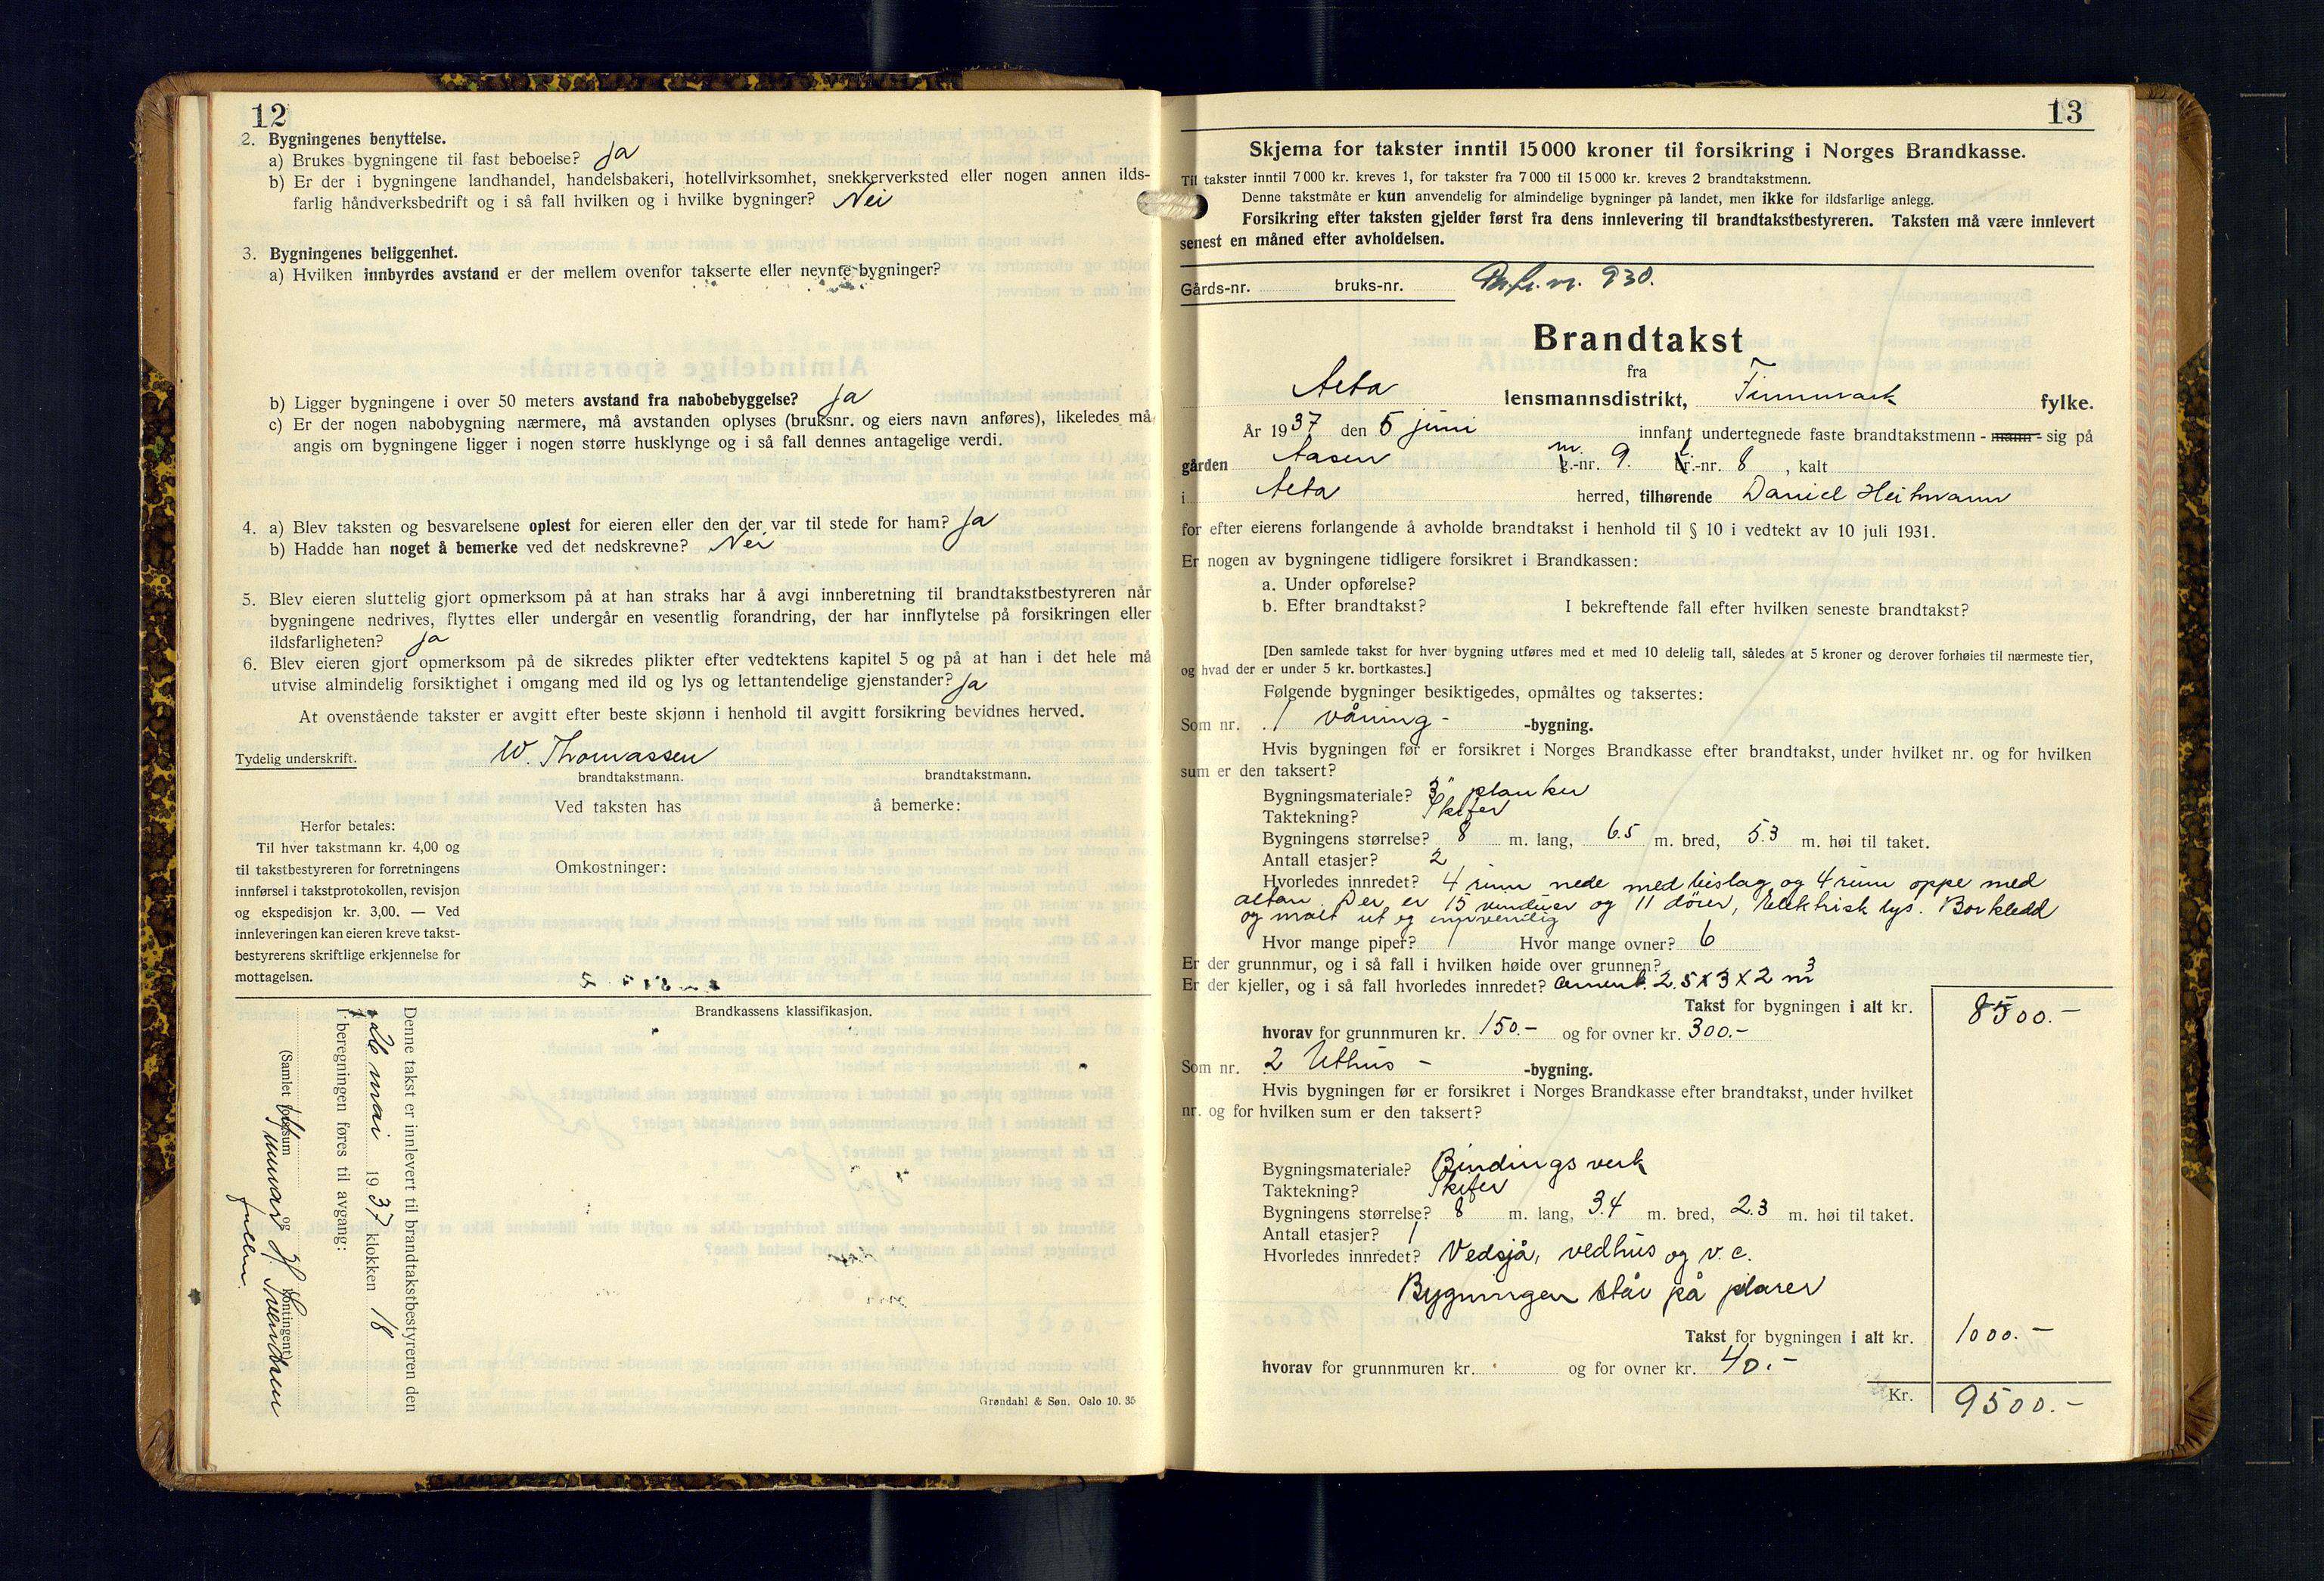 12
2. Bygningenes benyttelse.
a) Brukes bygningene til fast beboelse? Ja
b) Er der i bygningene landhandel, handelsbakeri, hotellvirksomhet, snekkerverksted eller nogen annen ilds-
farlig håndverksbedrift og i så fall hvilken og i hvilke bygninger? Nei
3. Bygningenes beliggenhet.
a) Hvilken innbyrdes avstand er der mellem ovenfor takserte eller nevnte bygninger?
b) Ligger bygningene i over 50 meters avstand fra nabobebyggelse? Ja
c) Er der nogen nabobygning nærmere, må avstanden oplyses (bruksnr. og eiers navn anføres), likeledes må
angis om bygningene ligger i nogen større husklynge og i så fall dennes antagelige verdi.
4. a) Blev taksten og besvarelsene oplest for eieren eller den der var til stede for ham? Ja
b) Hadde han noget å bemerke ved det nedskrevne? Nei
5. Blev eieren sluttelig gjort opmerksom på at han straks har å avgi innberetning til brandtakstbestyreren når
bygningene nedrives, flyttes eller undergår en vesentlig forandring, der har innflytelse på forsikringen eller
ildsfarligheten? Ja
6. Blev eieren gjort opmerksom på de sikredes plikter efter vedtektens kapitel 5 og på at han i det hele må
utvise almindelig forsiktighet i omgang med ild og lys og lettantendelige gjenstander? Ja
At ovenstående takster er avgitt efter beste skjønn i henhold til avgitt forsikring bevidnes herved.
Tydelig underskrift. W. Thomassen
brandtakstmann. brandtakstmann.
Ved taksten has å bemerke:
Herfor betales:
Til hver takstmann kr. 4,00 og
til takstbestyreren for forretningens
innførsel i takstprotokollen, revisjon
og ekspedisjon kr. 3,00. — Ved
innleveringen kan eieren kreve takst-
bestyrerens skriftlige erkjennelse for
mottagelsen.
Omkostninger:
Brandkassens klassifikasjon.
Denne takst er innlevert til brandtakstbestyreren den
26 mai 1937 klokken 18
I beregningen føres til avgang:
(Samlet sum og kontingent)
H. Svendsen
Grøndahl & Søn. Oslo 10. 35
13
Skjema for takster inntil 15000 kroner til forsikring i Norges Brandkasse.
Til takster inntil 7 000 kr. kreves 1, for takster fra 7 000 til 15 000 kr. kreves 2 brandtakstmenn.
Denne takstmåte er kun anvendelig for almindelige bygninger på landet, men ikke for ildsfarlige anlegg.
Forsikring efter taksten gjelder først fra dens innlevering til brandtakstbestyreren. Taksten må være innlevert
senest en måned efter avholdelsen.
Gårds-nr. bruks-nr. 930.
Brandtakst
fra
Alta lensmannsdistrikt, Finnmark fylke.
År 1937 den 5 juni innfant undertegnede faste brandtakstmenn - mann - sig på
gården Aasen m.-nr. 9. l.-nr. 8, kalt
i Alta herred, tilhørende Daniel Heitmann
for efter eierens forlangende å avholde brandtakst i henhold til § 10 i vedtekt av 10 juli 1931.
Er nogen av bygningene tidligere forsikret i Brandkassen:
a. Under opførelse?
b. Efter brandtakst? I bekreftende fall efter hvilken seneste brandtakst?
[Den samlede takst for hver bygning utføres med et med 10 delelig tall, således at 5 kroner og derover forhøies til nærmeste tier,
og hvad der er under 5 kr. bortkastes.]
Følgende bygninger besiktigedes, opmåltes og taksertes:
Som nr. 1 våning- -bygning.
Hvis bygningen før er forsikret i Norges Brandkasse efter brandtakst, under hvilket nr. og for hvilken
sum er den taksert?
Bygningsmateriale? 3" planker
Taktekning? Skifer
Bygningens størrelse? 8 m. lang, 6.5 m. bred, 5.3 m. høi til taket.
Antall etasjer? 2
Hvorledes innredet? 4 rum nede med bislag og 4 rum oppe med
altan. Der er 15 vinduer og 11 dører, Elektrisk lys. Borkledd
og malt ut og innvendig
Hvor mange piper? 1 Hvor mange ovner? 6
Er der grunnmur, og i så fall i hvilken høide over grunnen?
Er der kjeller, og i så fall hvorledes innredet? Cement. 2.5 x 3 x 2 m³
Takst for bygningen i alt kr. 8500.-
hvorav for grunnmuren kr. 150.- og for ovner kr. 300.-
Som nr. 2 Uthus - -bygning.
Hvis bygningen før er forsikret i Norges Brandkasse efter brandtakst, under hvilket
nr. og for hvilken sum er den taksert?
Bygningsmateriale? Bindingsverk
Taktekning? Skifer
Bygningens størrelse? 8 m. lang, 3.4 m. bred, 2.3 m. høi til taket.
Antall etasjer? 1
Hvorledes innredet? Vedsjå, vedhus og v.c.
Bygningen står på plarer
Takst for bygningen i alt kr. 1000.-
hvorav for grunnmuren kr. og for ovner kr. 40.-
Kr. 9500.-